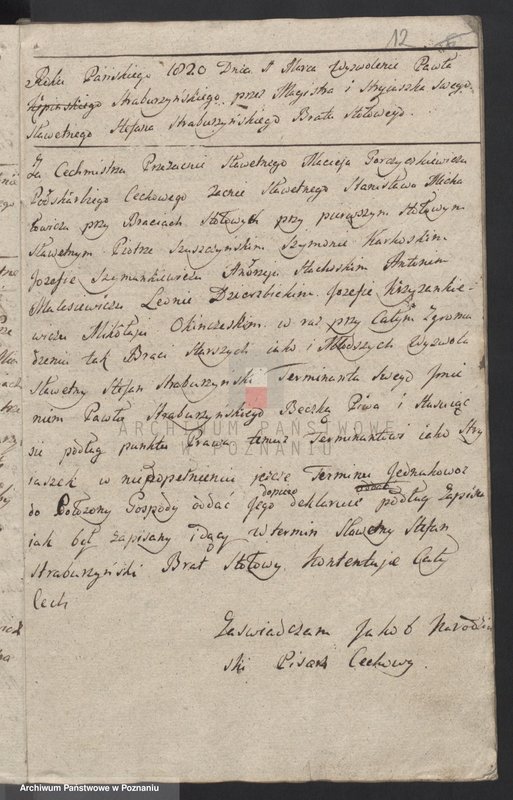 12
Roku Pańskiego 1820 Dnia Marca Wyzwolenie Pawła
Straburzyńskiego przez Magistra i Stryiaszka Swego
Sławetnego Stefana Straburzyńskiego Brata Stołowego.
Za Cechmistra Przezacnie Sławetnego Macieja Gorczyczkiewicza
Podskarbiego Cechowego zacnie Sławetnego Stanisława Micha
łowicza przy Braciach Stołowych przy pierwszym Stołowym
Sławetnym Piotrze Szuszczynskim Szymonie Karkoskim
Jozefie Szymankiewiczu Andrzeju Stachoskim Antonim
Malesiewiczu Leonie Dzierzbickim Jozefie Krzyzankie-
wiczu Mikołaju Okinczeskim w raz przy Całym Zgroma
dzeniu tak Braci Starszych iako i Młodszych Wyzwala
Sławetny Stefan Straburzynski Terminanta Swego Jmie
niem Pawła Straburzynskiego Beczką Piwa i Stosuiąc
się podług punktu Prawa temuż Terminantowi iako Stry
iaszek w niedopełnieniu jeszcze Terminu Jednakowoz
do Połozony Gospody oddać Jego deklaruie podług Zapisu
dopiero
iak był zapisany idący w termin Sławetny Stefan
Straburzyński Brat Stołowy Kontentuje Cały
Cech
Zaswiadczam Jakob
ski Pisarz Cechowy.
ARCHIWUM PAŃSTWOWE
W POZNANIU
Archiwum Państwowe w Poznaniu